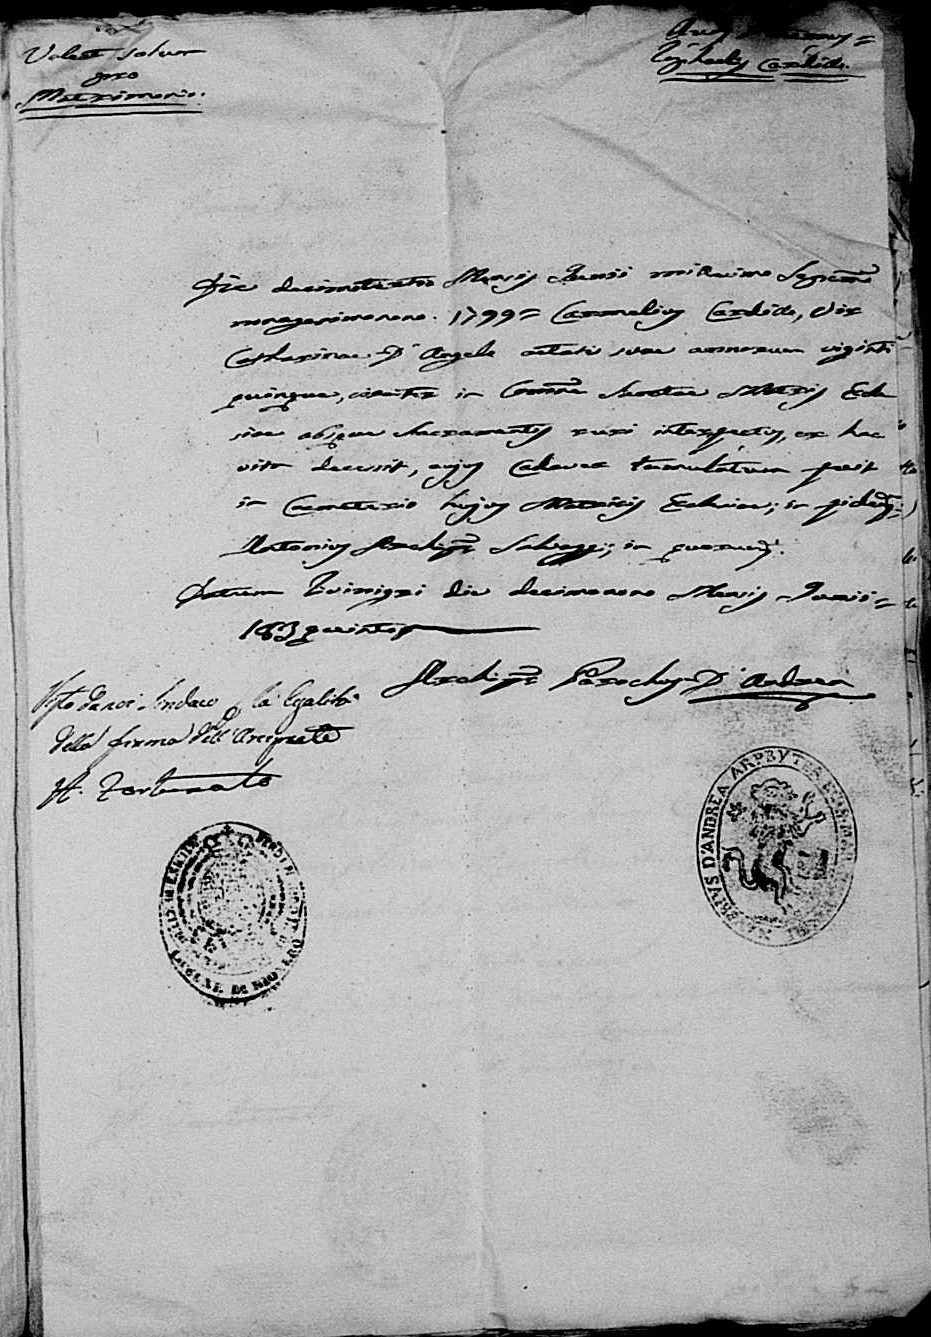 Valeat solum
pro
Matrimonio.
Raphaelis Candido.
Die decimotertio Mensis Junii millesimo Septuagesimo
nonagesimonono. 1799= Carmelius Candido, Vir
Catharinae D'Angelo aetatis suae annorum viginti
quinque, circiter in Comne Sanctae Matris Eccle
siae absque Sacramentis ruri interfectus, ex hac
vita decessit, cujus Cadaver tumulatum fuit
in Cemeterio hujus Matricis Ecclesiae; in fidem=
Antonius Archipr Salvaggi; in quorum.
Datum die decimonono Mensis Junii=
183 quinto
Archipr Parochus D'Andrea
Visto da noi Sindaco la legalità
della firma dell'Arciprete
Fortunato
D'ANDREA ARPBYTER
COMUNE DI RIONERO